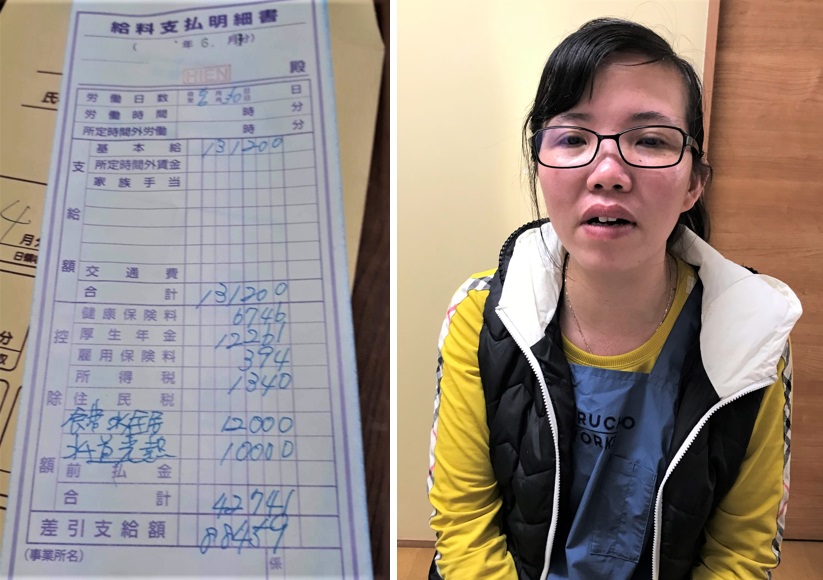 給料支払明細書
( 年 6. 月分)
HIEN 殿
労働日数 日
労働時間 時 分
所定時間外労働 時 分
支給額
基本給 131200
所定時間外賃金
家族手当
交通費
合計 131200
控除額
健康保険料 6746
厚生年金 12261
雇用保険料 394
所得税 1340
住民税
12000
水道光熱 10000
前払金
合計 42741
差引支給額 88459
(事業所名) 係
氏
4
月分
分
RUC
ORK